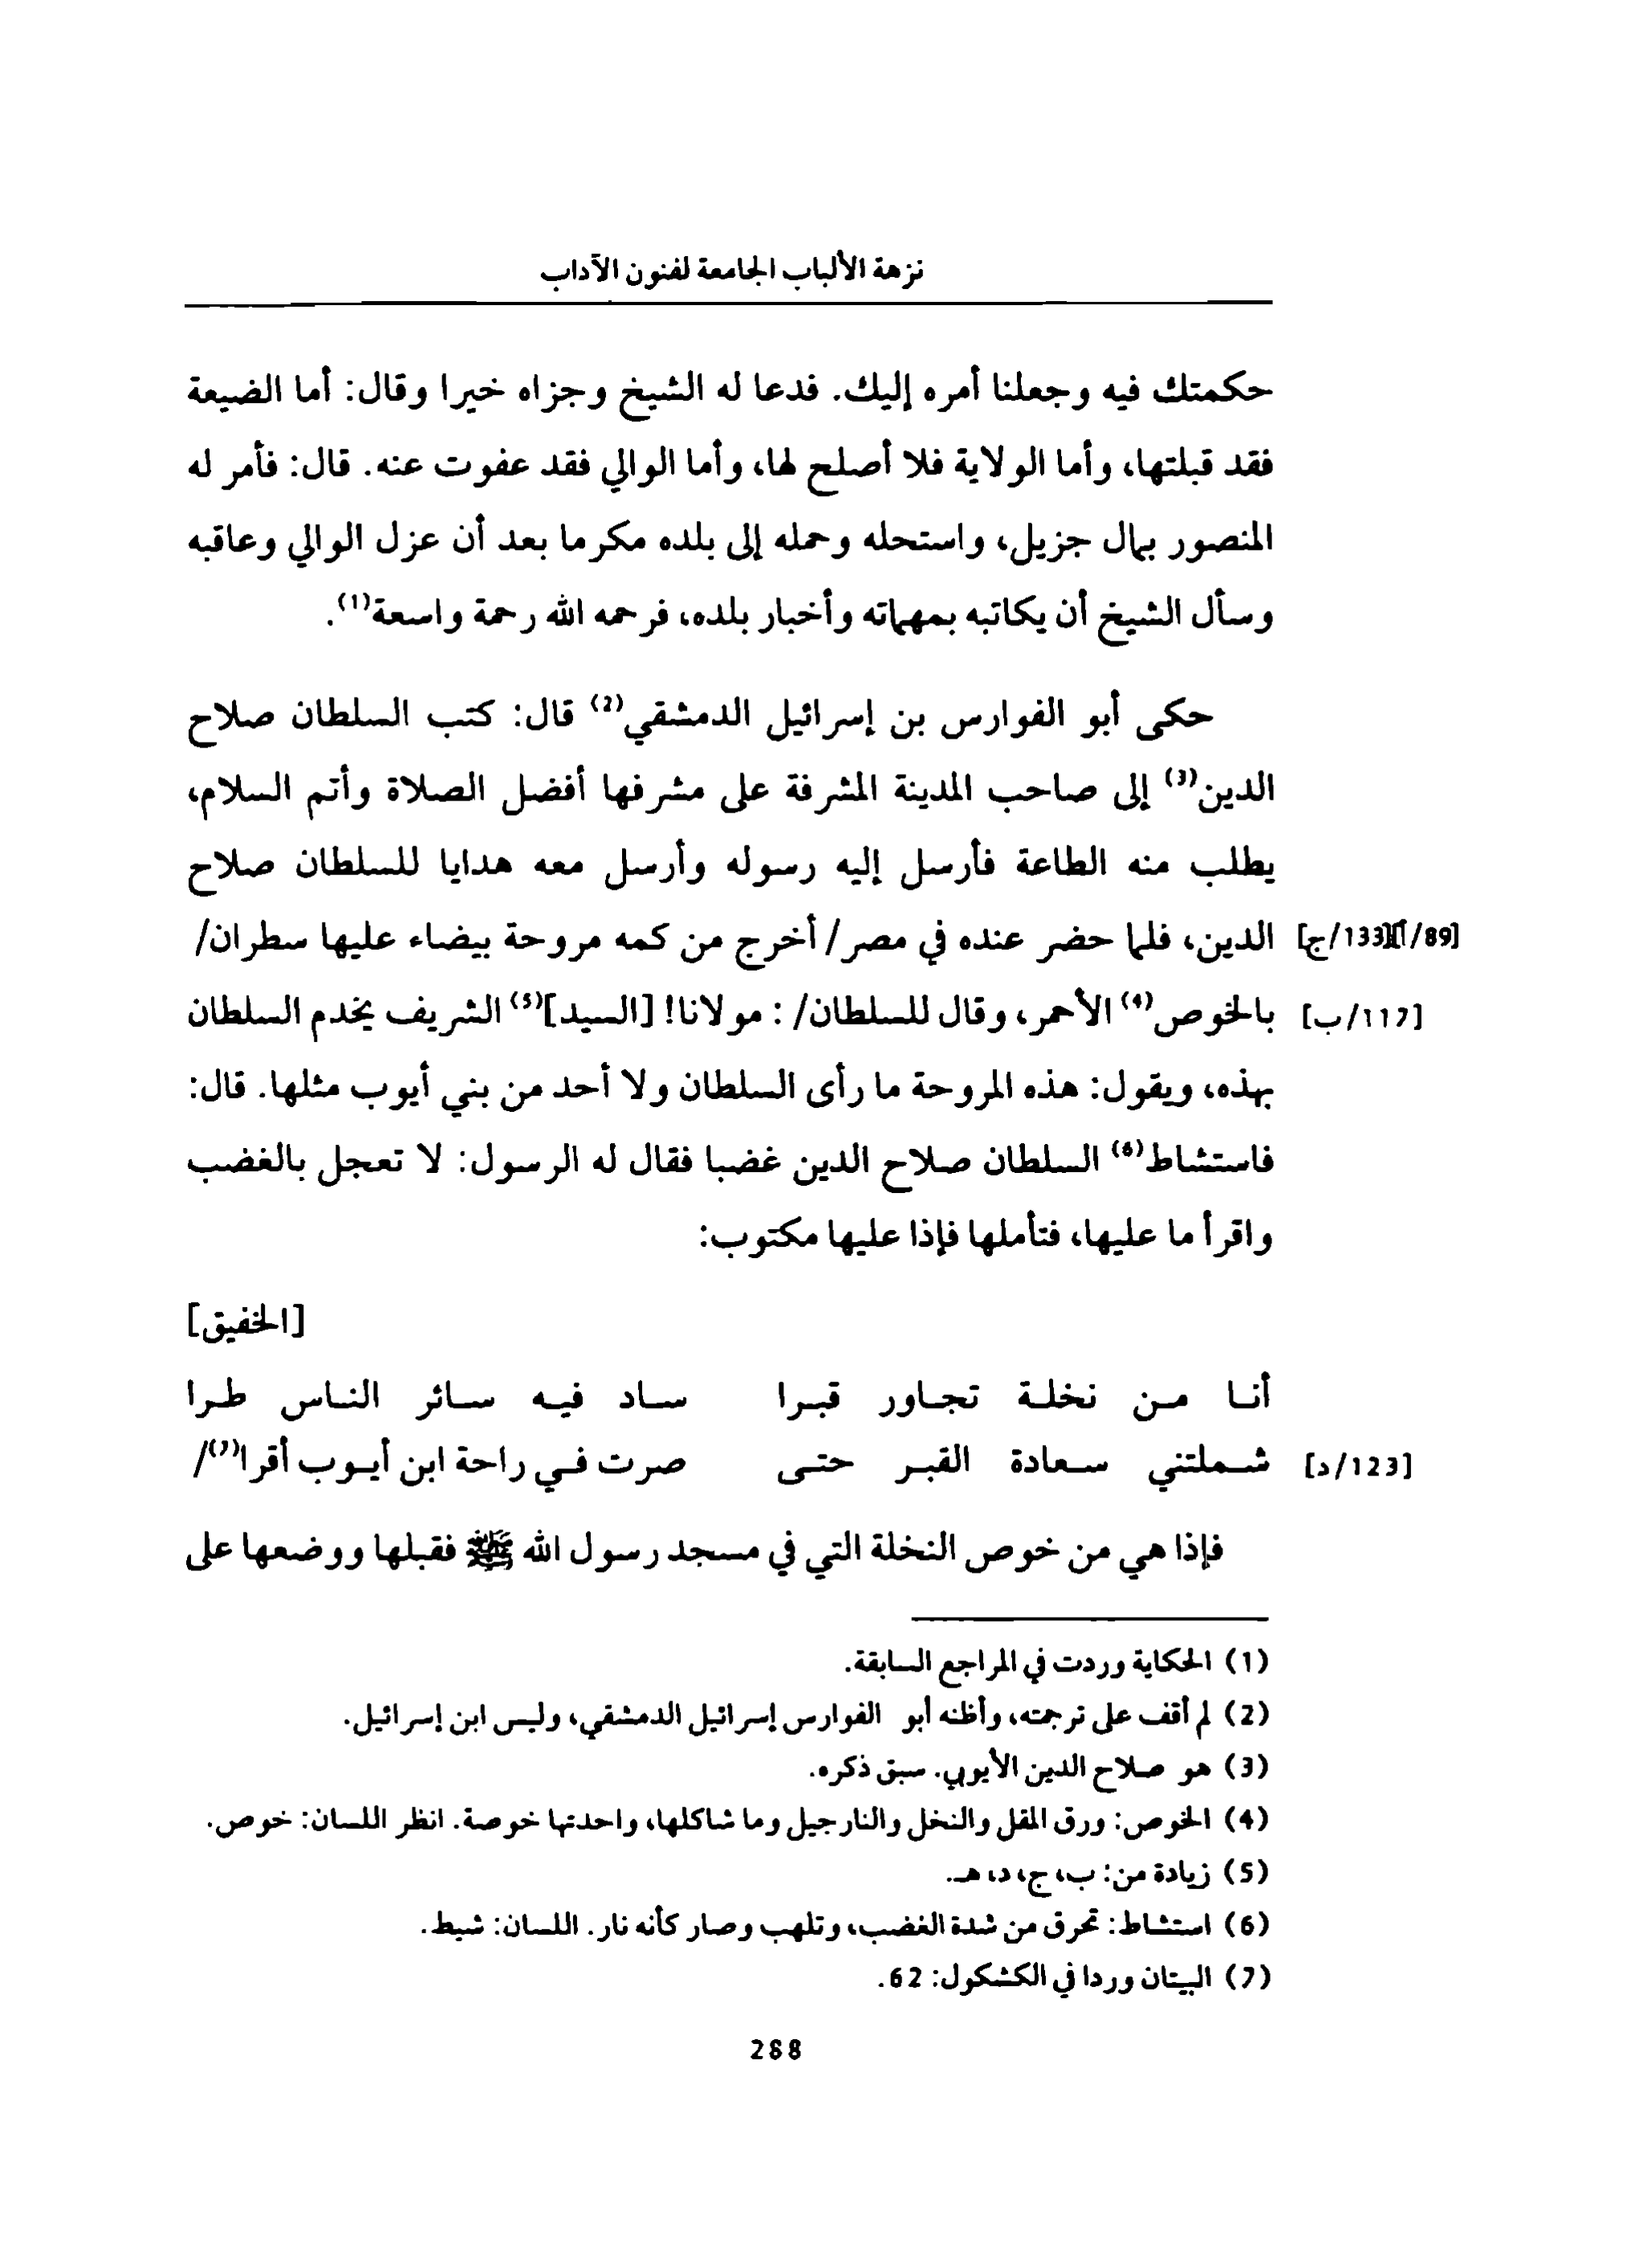 نزهة الألباب الجامعة لفنون الآداب
حكمتك فيه وجعلنا أمره إليك. فدعا له الشيخ وجزاه خيرا وقال: أما الضيعة
فقد قبلتها، وأما الولاية فلا أصلح لها، وأما الوالي فقد عفوت عنه. قال: فأمر له
المنصور بمال جزيل، واستحله وحمله إلى بلده مكرما بعد أن عزل الوالي وعاقبه
وسأل الشيخ أن يكاتبه بمهماته وأخبار بلده، فرحمه الله رحمة واسعة(1).
حكى أبو الفوارس بن إسرائيل الدمشقي(2) قال: كتب السلطان صلاح
الدين(3) إلى صاحب المدينة المشرفة على مشرفها أفضل الصلاة وأتم السلام،
يطلب منه الطاعة فأرسل إليه رسوله وأرسل معه هدايا للسلطان صلاح
[89/أ][133/ج] الدين، فلما حضر عنده في مصر/ أخرج من كمه مروحة بيضاء عليها سطران/
[117/ب] بالخوص(4) الأحمر، وقال للسلطان/ : مولانا! [السيد](5) الشريف يخدم السلطان
بهذه، ويقول: هذه المروحة ما رأى السلطان ولا أحد من بني أيوب مثلها. قال:
فاستشاط(6) السلطان صلاح الدين غضبا فقال له الرسول: لا تعجل بالغضب
واقرأ ما عليها، فتأملها فإذا عليها مكتوب:
[الخفيق]
أنـا مـن نخلـة تجـاور قبـرا ساد فيـه سـائر النـاس طـرا
[123/د] شـملتني سـعادة القبـر حتـى صرت فـي راحة ابن أيـوب أقرا(7)/
فإذا هي من خوص النخلة التي في مسجد رسول الله ﷺ فقبلها ووضعها على
(1) الحكاية وردت في المراجع السابقة.
(2) لم أقف على ترجمته، وأظنه أبو الفوارس إسرائيل الدمشقي، وليس ابن إسرائيل.
(3) هو صلاح الدين الأيوبي. سبق ذكره.
(4) الخوص: ورق المقل والنخل والنارجيل وما شاكلها، واحدتها خوصة. انظر اللسان: خوص.
(5) زيادة من: ب، ج، د، هـ.
(6) استشاط: تحرق من شدة الغضب، وتلهب وصار كأنه نار. اللسان: شيط.
(7) البيتان وردا في الكشكول: 62.
288